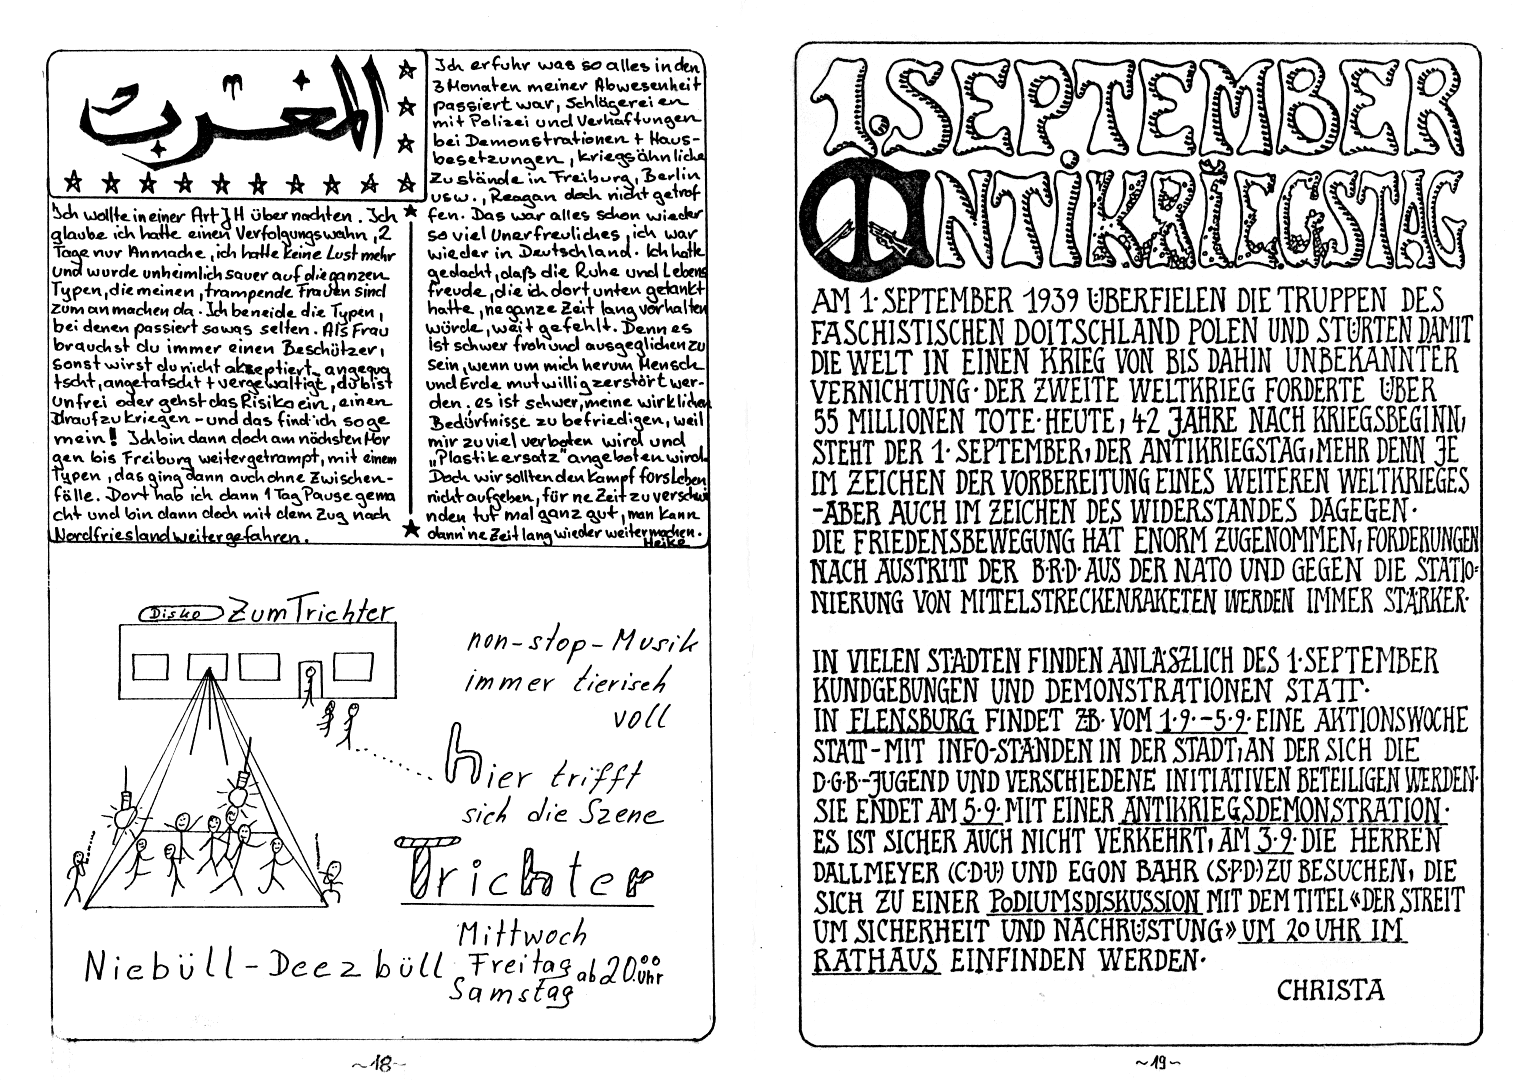 المغرب
Ich wollte in einer Art JH übernachten. Ich
glaube ich hatte einen Verfolgungswahn, 2
Tage nur Anmache, ich hatte keine Lust mehr
und wurde unheimlich sauer auf die ganzen
Typen, die meinen, trampende Frauen sind
zum anmachen da. Ich beneide die Typen,
bei denen passiert sowas selten. Als Frau
brauchst du immer einen Beschützer,
sonst wirst du nicht akzeptiert, angequa
tscht, angetatscht + vergewaltigt, du bist
unfrei oder gehst das Risiko ein, einen
draufzukriegen - und das find' ich so ge
mein! Ich bin dann doch am nächsten Mor
gen bis Freiburg weitergetrampt, mit einem
Typen, das ging dann auch ohne Zwischen-
fälle. Dort hab ich dann 1 Tag Pause gema
cht und bin dann doch mit dem Zug nach
Nordfriesland weitergefahren.
Ich erfuhr was so alles in den
3 Monaten meiner Abwesenheit
passiert war, Schlägereien
mit Polizei und Verhaftungen
bei Demonstrationen + Haus-
besetzungen, kriegsähnliche
Zustände in Freiburg, Berlin
usw., Reagan doch nicht getrof
fen. Das war alles schon wieder
so viel Unerfreuliches, ich war
wieder in Deutschland. Ich hatte
gedacht, daß die Ruhe und Lebens
freude, die ich dort unten getankt
hatte, ne ganze Zeit lang vorhalten
würde, weit gefehlt. Denn es
ist schwer froh und ausgeglichen zu
sein, wenn um mich herum Mensch
und Erde mutwillig zerstört wer-
den. es ist schwer, meine wirklichen
Bedürfnisse zu befriedigen, weil
mir zuviel verboten wird und
„Plastikersatz" angeboten wird.
Doch wir sollten den Kampf fürs Leben
nicht aufgeben, für ne Zeit zu verschwi
nden tut mal ganz gut, man kann
dann 'ne Zeit lang wieder weitermachen.
Heike
Disko Zum Trichter
non-stop-Musik
immer tierisch
voll
hier trifft
sich die Szene
Trichter
Niebüll-Deezbüll
Mittwoch
Freitag
Samstag
ab 20.00 Uhr
~18~
1. SEPTEMBER
ANTIKRIEGSTAG
AM 1. SEPTEMBER 1939 ÜBERFIELEN DIE TRUPPEN DES
FASCHISTISCHEN DOITSCHLAND POLEN UND STÜRTEN DAMIT
DIE WELT IN EINEN KRIEG VON BIS DAHIN UNBEKANNTER
VERNICHTUNG. DER ZWEITE WELTKRIEG FORDERTE ÜBER
55 MILLIONEN TOTE. HEUTE, 42 JAHRE NACH KRIEGSBEGINN,
STEHT DER 1. SEPTEMBER, DER ANTIKRIEGSTAG, MEHR DENN JE
IM ZEICHEN DER VORBEREITUNG EINES WEITEREN WELTKRIEGES
-ABER AUCH IM ZEICHEN DES WIDERSTANDES DAGEGEN.
DIE FRIEDENSBEWEGUNG HAT ENORM ZUGENOMMEN, FORDERUNGEN
NACH AUSTRITT DER B.R.D. AUS DER NATO UND GEGEN DIE STATIO=
NIERUNG VON MITTELSTRECKENRAKETEN WERDEN IMMER STÄRKER.
IN VIELEN STÄDTEN FINDEN ANLÄSZLICH DES 1. SEPTEMBER
KUNDGEBUNGEN UND DEMONSTRATIONEN STATT.
IN FLENSBURG FINDET ZB. VOM 1.9.-5.9. EINE AKTIONSWOCHE
STATT - MIT INFO-STÄNDEN IN DER STADT, AN DER SICH DIE
D.G.B.-JUGEND UND VERSCHIEDENE INITIATIVEN BETEILIGEN WERDEN.
SIE ENDET AM 5.9. MIT EINER ANTIKRIEGSDEMONSTRATION.
ES IST SICHER AUCH NICHT VERKEHRT, AM 3.9. DIE HERREN
DALLMEYER (C.D.U.) UND EGON BAHR (S.P.D.) ZU BESUCHEN, DIE
SICH ZU EINER PODIUMSDISKUSSION MIT DEM TITEL «DER STREIT
UM SICHERHEIT UND NACHRÜSTUNG» UM 20 UHR IM
RATHAUS EINFINDEN WERDEN.
CHRISTA
~19~